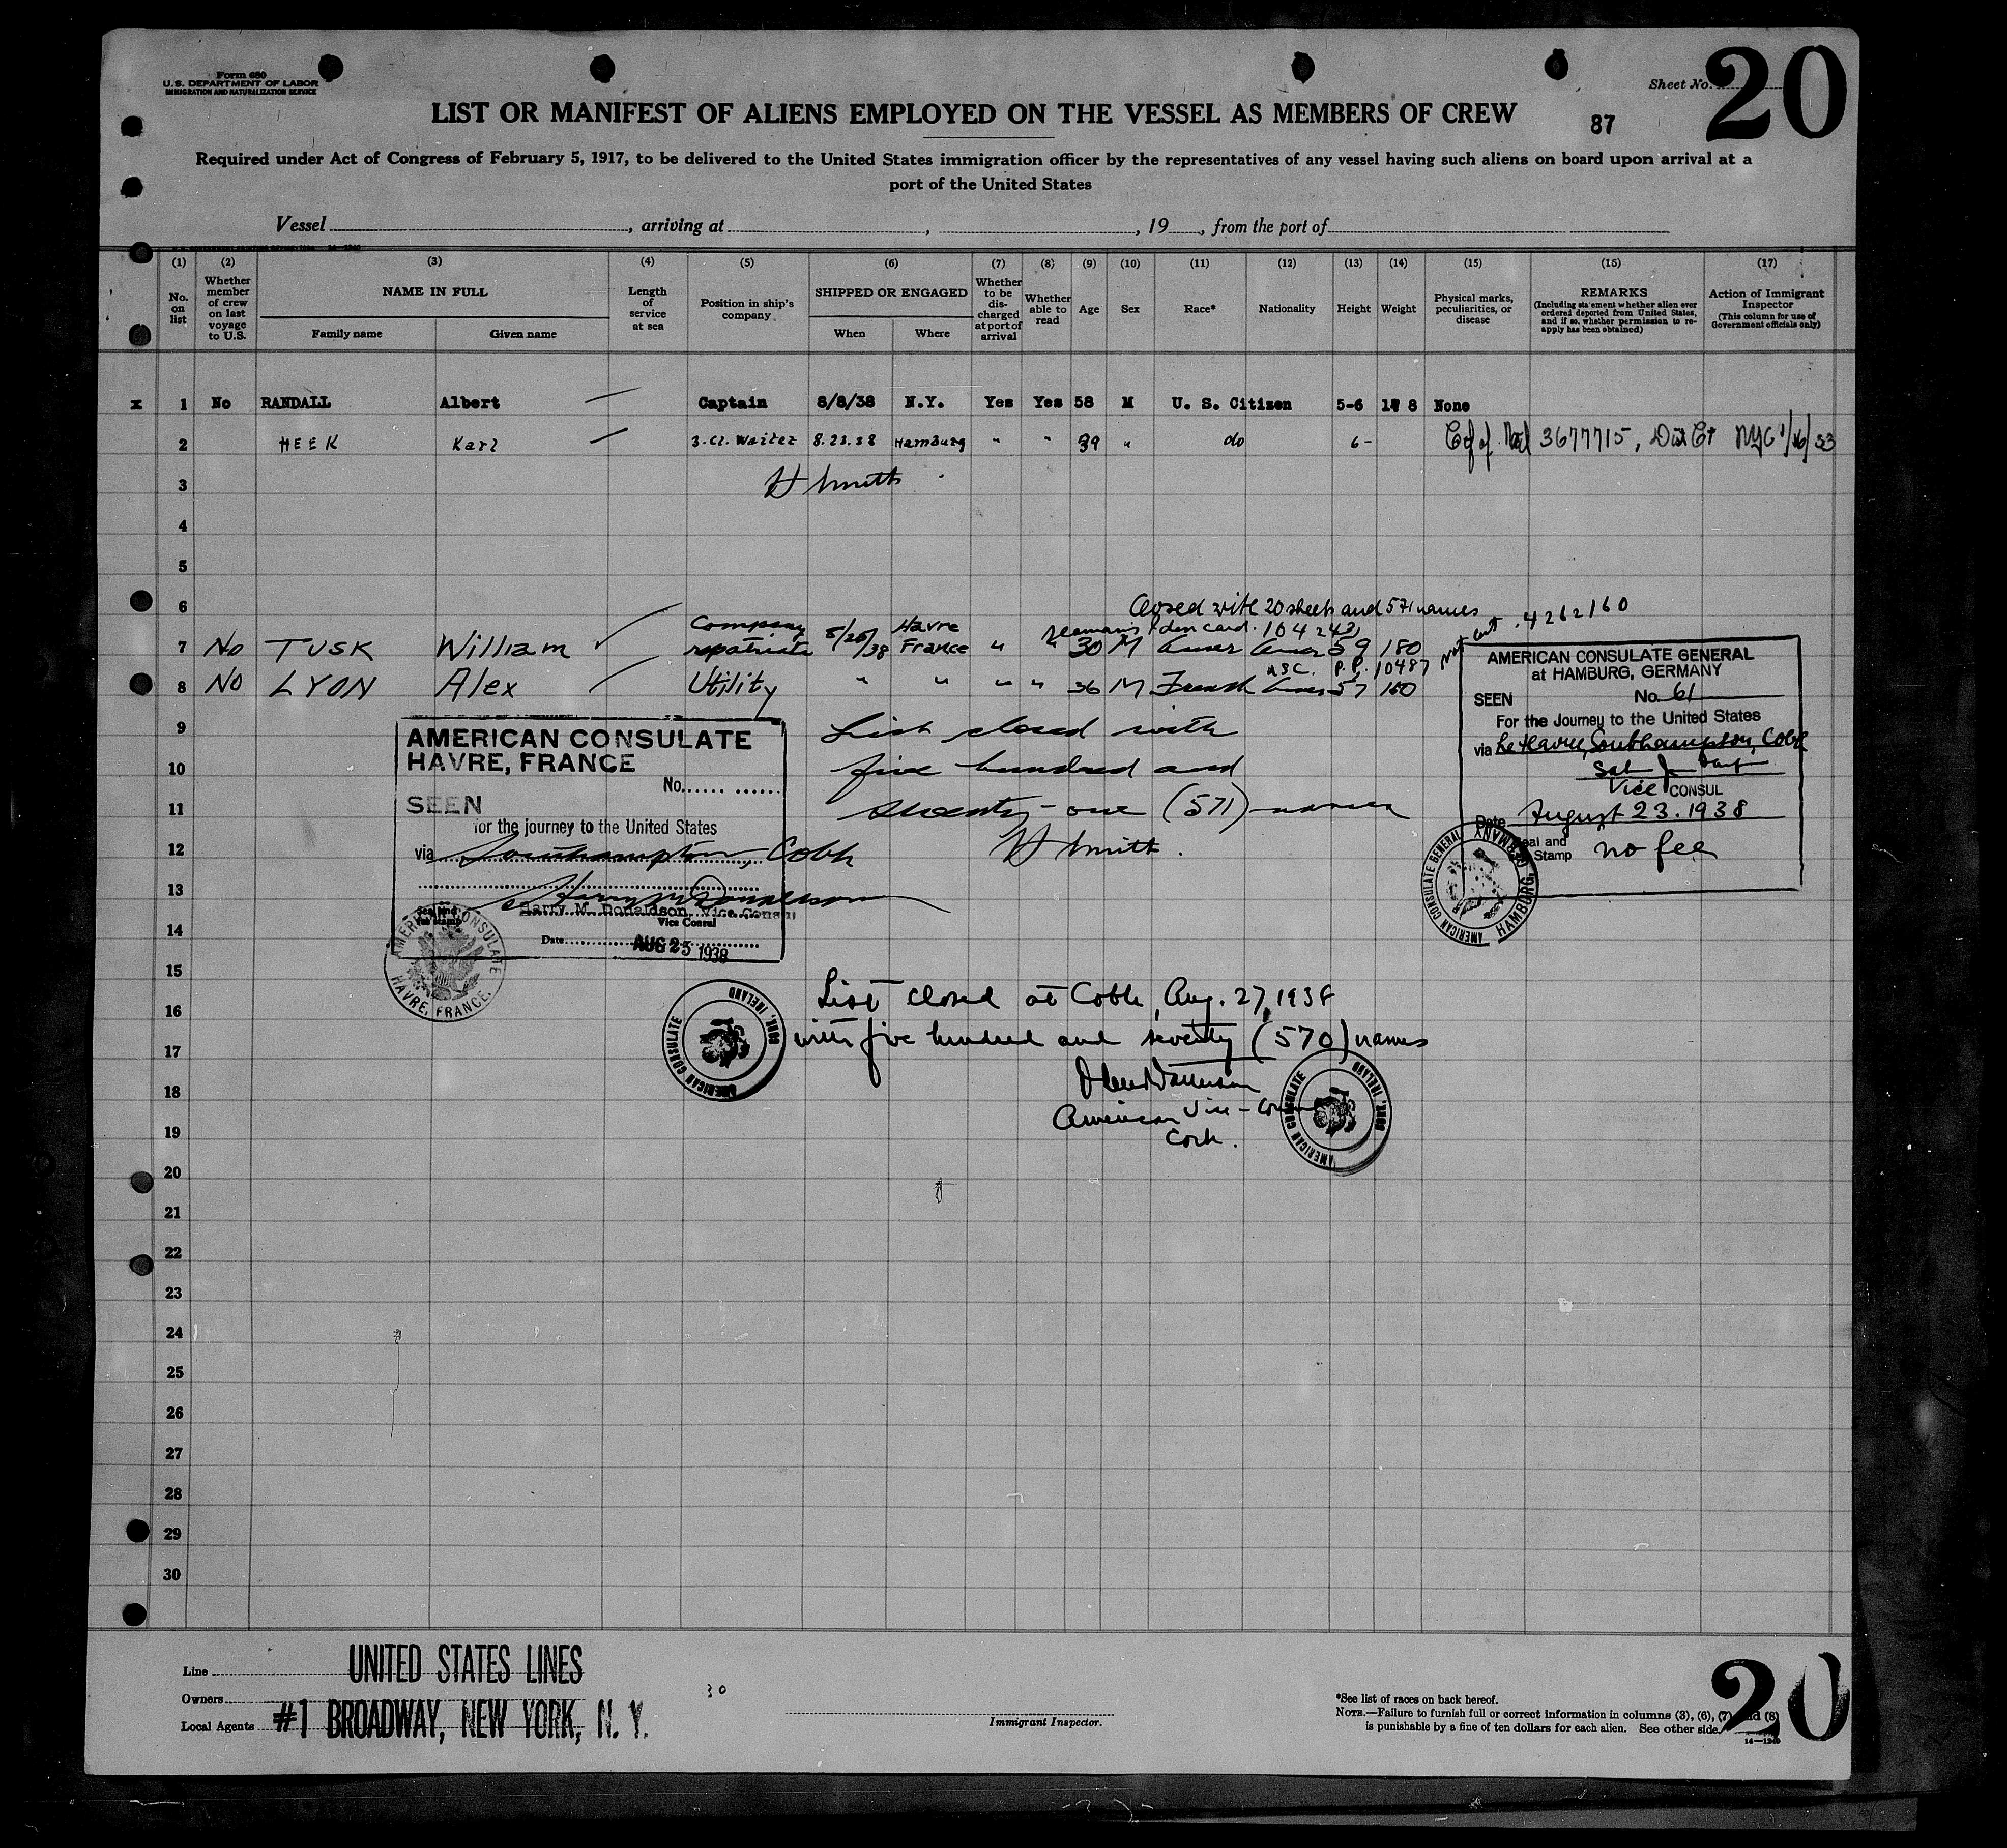 Form 680
U.S. DEPARTMENT OF LABOR
IMMIGRATION AND NATURALIZATION SERVICE
Sheet No. 20
LIST OR MANIFEST OF ALIENS EMPLOYED ON THE VESSEL AS MEMBERS OF CREW
87
Required under Act of Congress of February 5, 1917, to be delivered to the United States immigration officer by the representatives of any vessel having such aliens on board upon arrival at a
port of the United States
Vessel, arriving at, , 19, from the port of
(1) (2) (3) (4) (5) (6) (7) (8) (9) (10) (11) (12) (13) (14) (15) (15) (17)
No. on list
Whether member of crew on last voyage to U.S.
NAME IN FULL
Family name Given name
Length of service at sea
Position in ship's company
SHIPPED OR ENGAGED
When Where
Whether to be discharged at port of arrival
Whether able to read
Age
Sex
Race*
Nationality
Height
Weight
Physical marks, peculiarities, or disease
REMARKS
(Including statement whether alien ever ordered deported from United States, and if so, whether permission to reapply has been obtained)
Action of Immigrant Inspector
(This column for use of Government officials only)
x 1 No RANDALL Albert Captain 8/8/38 N.Y. Yes Yes 58 M U. S. Citizen 5-6 1 8 None
2 HEEK Karl 3.Cl. Waiter 8.23.38 Hamburg " " 39 " do 6- 3677715, Dist Ct NYC 1/16/33
3 H Smith
4
5
6 Closed with 20 sheets and 571 names
Seaman's Iden card. 104242 4262160
7 No TUSK William Company repatriate 8/25/38 Havre France " " 30 M Amer Amer 5 9 180
U.S.C. P.P. 10487
8 No LYON Alex Utility " " " " 36 M French Amer 5 7 160
AMERICAN CONSULATE GENERAL
at HAMBURG, GERMANY
SEEN No. 61
For the Journey to the United States
via Le Havre, Southampton, Cobh
Vice CONSUL
Date August 23. 1938
Seal and
Stamp no fee
AMERICAN CONSULATE GENERAL HAMBURG, GERMANY
AMERICAN CONSULATE
HAVRE, FRANCE
No.
SEEN
for the journey to the United States
via Southampton, Cobh
Harry M Donaldson
Harry M. Donaldson, Vice Consul
Vice Consul
Seal and
fee stamp
Date AUG 25 1938
AMERICAN CONSULATE HAVRE, FRANCE.
9 List closed with
10 five hundred and
11 seventy-one (571) names
12 H Smith.
13
14
15
16 List closed at Cobh, Aug. 27, 1938
17 with five hundred and seventy (570) names
18
American Vice-Consul
19 Cork.
AMERICAN CONSULATE CORK, IRELAND
AMERICAN CONSULATE CORK, IRELAND
20
21
22
23
24
25
26
27
28
29
30
Line UNITED STATES LINES
Owners
Local Agents #1 BROADWAY, NEW YORK, N. Y.
30
Immigrant Inspector.
*See list of races on back hereof.
NOTE.—Failure to furnish full or correct information in columns (3), (6), (7) and (8)
is punishable by a fine of ten dollars for each alien. See other side.
14—1240
20